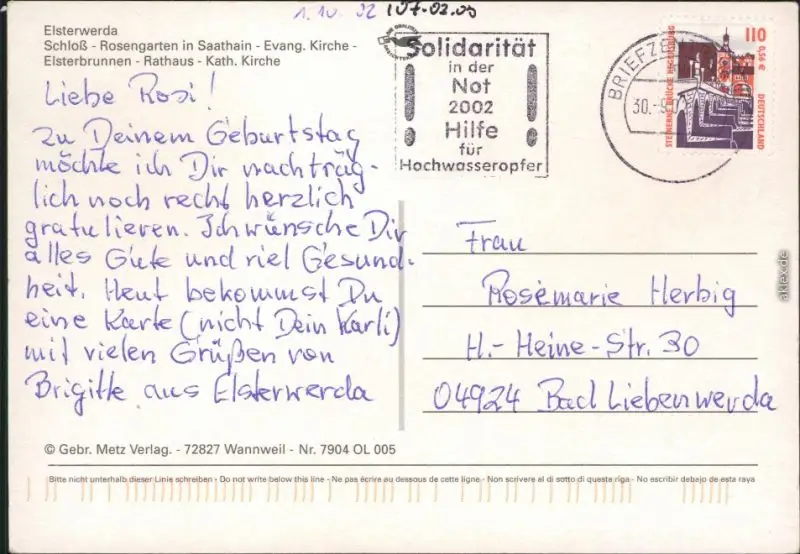 1. 10. 02
Elsterwerda
Schloß - Rosengarten in Saathain - Evang. Kirche -
Elsterbrunnen - Rathaus - Kath. Kirche
Solidarität
in der
Not
2002
Hilfe
für
Hochwasseropfer
BRIEFZ
30.-9.0
110
0,56 €
DEUTSCHLAND
STEINERNE BRÜCKE REGENSBURG
Liebe Rosi!
zu Deinem Geburtstag
möchte ich Dir nachträg-
lich noch recht herzlich
gratulieren. Ich wünsche Dir
alles Gute und viel Gesund-
heit. Heut bekommst Du
eine Karte (nicht Dein Karli)
mit vielen Grüßen von
Brigitte aus Elsterwerda
Frau
Rosemarie Herbig
H.-Heine-Str. 30
04924 Bad Liebenwerda
akpool.de
© Gebr. Metz Verlag. - 72827 Wannweil - Nr. 7904 OL 005
Bitte nicht unterhalb dieser Linie schreiben - Do not write below this line - Ne pas écrire au dessous de cette ligne - Non scrivere al di sotto di questa riga - No escribir debajo de esta raya